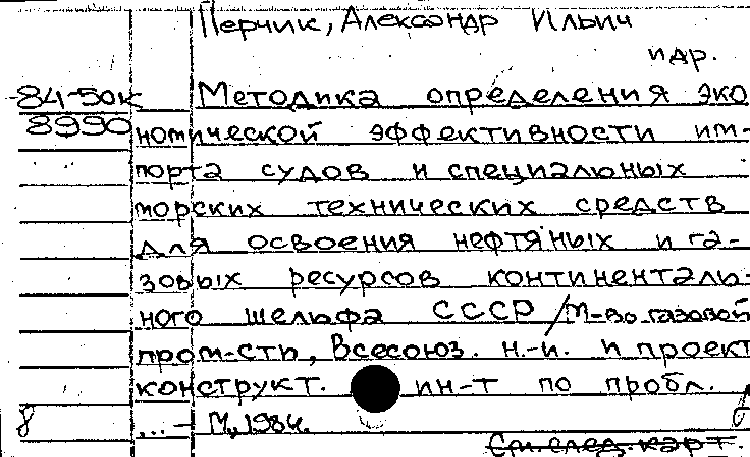 Перчик, Александр Ильич
и др.
84-50к Методика определения эко
8990 номической эффективности им-
порта судов и специальных
морских технических средств
для освоения нефтяных и га-
зовых ресурсов континенталь-
ного шельфа СССР / М-во газовой
пром-сти, Всесоюз. н.-и. и проект
конструкт. ин-т по пробл.
8 ...- М, 1984.
См. след. карт.